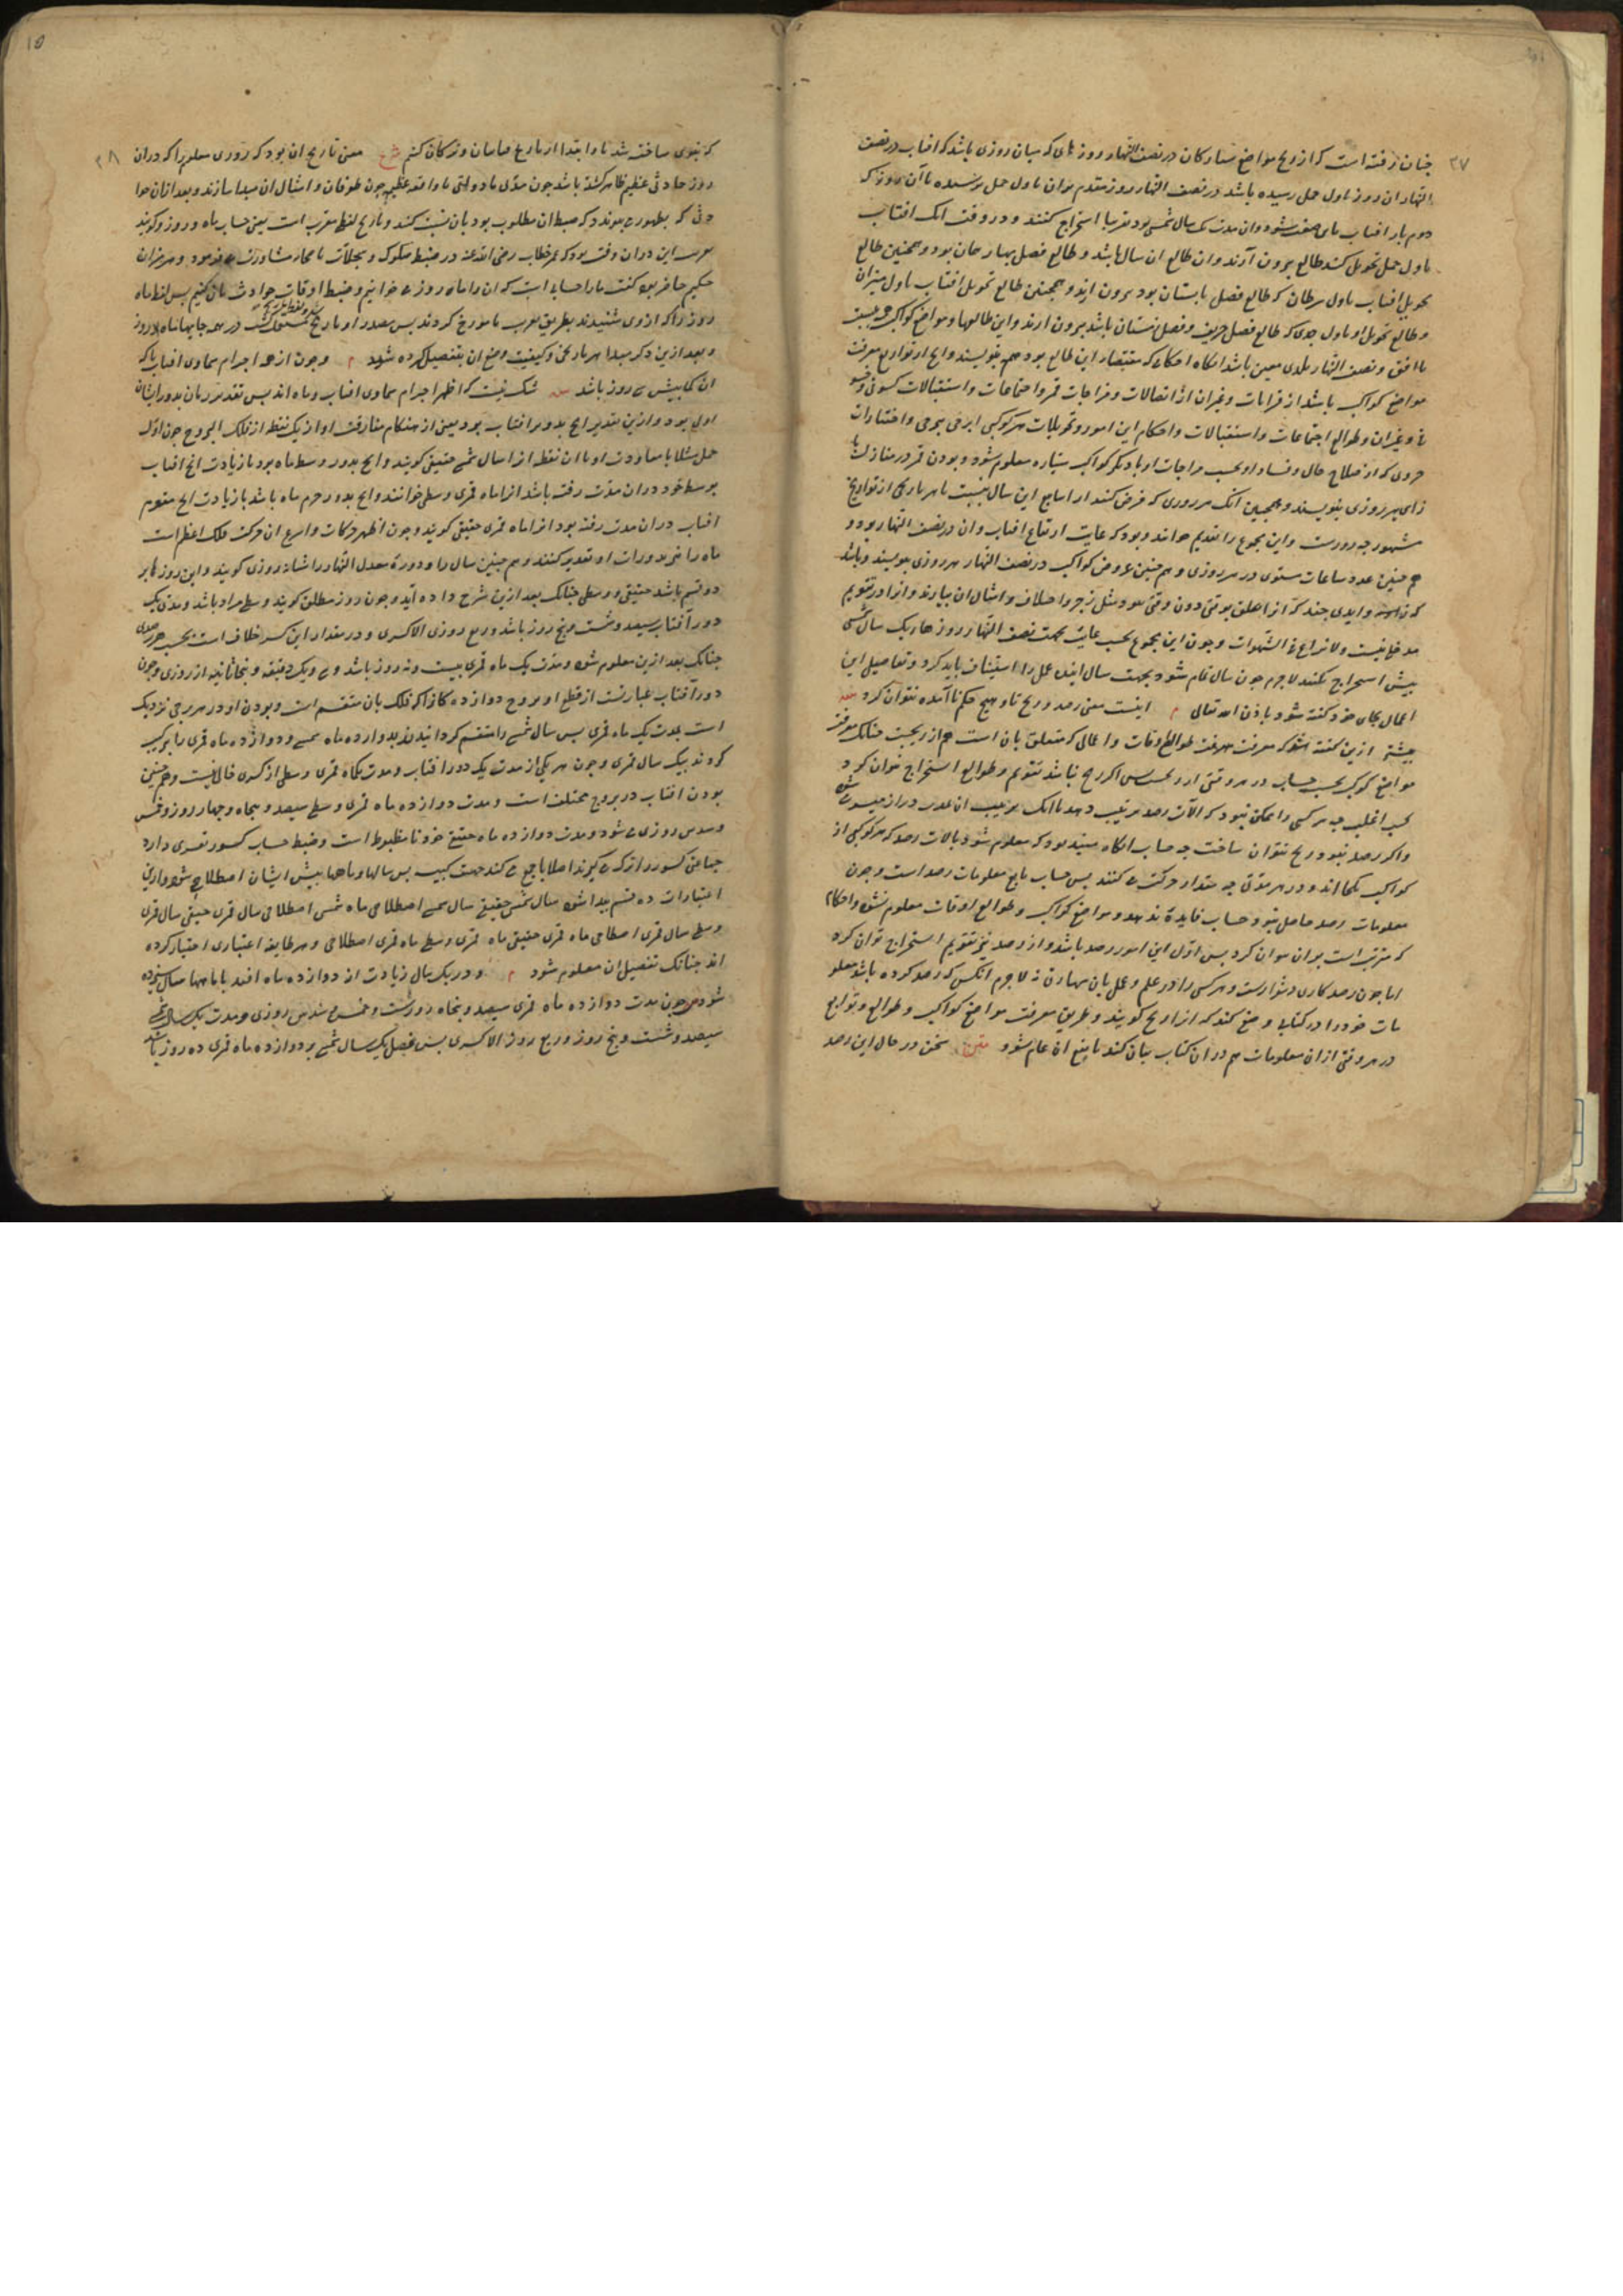 ۳۷
چنان رفته است که از زیج مواضع ستارکان در نصف النهار روزهای که میان روزی باشد که افتاب در نصف
النهار ان روز باول حمل رسیده باشد در نصف النهار روز مقدم بران باول حمل نرسیده تا آن روز که
دوم بار افتاب شود وان مدت یک سال شمسی بود تقریبا استخراج کنند و در وقت انک افتاب
باول حمل تحویل کند طالع بیرون آرند وان طالع ان سال باشد و طالع فصل بهار همان بود و همچنین طالع
تحویل افتاب باول سرطان که طالع فصل تابستان بود بیرون ارند و همچنین طالع تحویل افتاب باول میزان
و طالع تحویل او باول جدی که طالع فصل خریف و فصل زمستان باشد بیرون ارند و این طالعها و مواضع کواکب
با افق و نصف النهار بلدی معین باشد انکاه احکامی که مقتضاء این طالع بود همه بنویسند و انچ از توابع معرفت
مواضع کواکب باشد از قرانات و غیران از اتصالات و مزاجات قمر و اجتماعات و استقبالات کسوفی و خسو
فی و غیران و طوالع اجتماعات و استقبالات و احکام این امور و تحویلات هر کوکبی از برجی ببرجی و اختیارات
جزوی که از صلاح حال و فساد او بحسب مزاجات او با دیکر کواکب سیاره معلوم شود و بودن قمر در منازل
بهر روزی بنویسند و همچنین انک هر روزی که فرض کنند از ایام این سال نسبت با هر تاریخی از تواریخ
مشهور چه روزست و این مجموع را تقویم خوانند و بود که غایت ارتفاع افتاب وان در نصف النهار بود و
هم چنین عدد ساعات مستوی در هر روزی و هم چنین عروض کواکب در نصف النهار هر روزی بنویسند و باشد
که زواید چند که از اهلق بوقتی دون وقتی بود مثل زجر و اختلاف و امثال ان بیارند و انرا در تقویم
مدخلی نیست ولا نزاع فی الشهوات و چون این مجموع بحسب غایت بجهت نصف النهار روزهاء یک سال شمسی
بیش استخراج نکنند لاجرم چون سال تمام شود بجهت سال اینده عمل را استیناف باید کرد و تفاصیل این
اعمال بجای خود کفته شود باذن الله تعالی م اینست معنی رصد و زیج تا و هیچ حکم نا آمده نتوان کرد
پیشتر ازین کفته شد که معرفت طوالع اوقات و اعمالی که متعلق بان است هم از زیجست چنانک معرفت
مواضع کوکب بحسب حساب در هر وقتی از و بس اکر زیج نباشد تقویم و طوالع استخراج نتوان کرد
بحسب اغلب چه هر کسی را ممکن نبود که الات رصد ترتیب دهد با انک ترتیب ان بمدت دراز میسر شود
و اکر رصد نبود زیج نتوان ساخت چه حساب انکاه مفید بود که معلوم شود بالات رصد که هر کوکبی از
کواکب کجا اند و در هر مدتی چه مقدار حرکت می کنند پس حساب تابع معلومات رصد است و چون
معلومات رصد حاصل نبود حساب فایده ندهد و مواضع کواکب و طوالع اوقات معلوم نشود و احکام
که مترتب است بران نتوان کرد پس اول این امور رصد باشد و از رصد زیج تقویم استخراج توان کرد
اما چون رصد کاری دشوارست و هر کسی را در علم و عمل بان مهارت نه لاجرم انکس که رصد کرده باشد معلو
مات خود را در کتابی وضع کند که انرا زیج کویند و طریق معرفت مواضع کواکب و طوالع و توابع
در هر وقتی از ان معلومات هم در ان کتاب بیان کند تا نفع ان عام شود متن سخن در حال این رصد
۳۸
۱۵
که بنوی ساخته شد تا و ابتدا از تاریخ خاسان و ترکان کنیم شرح معنی تاریخ ان بود که روزی معلوم را که دران
روز حادثی عظیم ظاهر کشته باشد چون ملتی یا دولتی یا واقعه عظیم چون طوفان و امثال ان مبدا سازند و بعد ازان حوا
دثی که بظهور می پیوندد که ضبط ان مطلوب بود بان نسبت کنند و تاریخ لفظ معرب است یعنی حساب ماه و روز و کویند
تعریب این دران وقت بود که عمر خطاب رضی الله عنه در ضبط صکوک و سجلات با صحابه مشاورت می فرمود و هرمزان
حکیم حاضر بود کفت ما را حسابی است که ان را ماه روز می خوانیم و ضبط اوقات حوادث بان کنیم پس لفظ ماه
روز را که از وی شنیدند بطریق معرب با مورخ کردند پس مصدر او تاریخ در همه جایها نه ماه و روز
و بعد ازین ذکر مبدا هر تاریخی و کیفیت وضع ان بتفصیل کرده شود م و چون از همه اجرام سماوی افتاب پاک
ان کما بیش می روز باشد شک نیست که اظهر اجرام سماوی افتاب و ماه اند پس تقدیر زمان بدور ایشان
اولی بود و ازین تقدیر انچ بدور افتاب بود یعنی از هنکام مفارقت او از یک نقطه از فلک البروج چون اول
حمل مثلا با معاودت او با ان نقطه انرا سال شمسی حقیقی کویند و انچ بدور وسط ماه بود با زیادت انچ افتاب
بوسط خود دران مدت رفته باشد انرا ماه قمری وسطی خوانند و انچ بدور جرم ماه باشد با زیادت انچ مقوم
افتاب دران مدت رفته بود انرا ماه قمری حقیقی کویند و چون اظهر حرکات و اسرع ان حرکت فلک اعظم است
ماه را نیز بدورات او تقدیر کنند و هم چنین سال را و دوره معدل النهار را شبانروزی کویند و این روزها بر
دو قسم باشد حقیقی و وسطی چنانک بعد ازین شرح داده آید و چون روز مطلق کویند وسطی مراد باشد و مدت یک
دور آفتاب سیصد و شست و پنج روز باشد و ربع روزی الا کسری و در مقدار این کسر خلاف است بحسب هر رصدی
چنانک بعد ازین معلوم شود و مدت یک ماه قمری بیست و نه روز باشد و سی و یک دقیقه و پنجاه ثانیه از روزی و چون
دور آفتاب عبارتست از قطع او بروج دوازده کانه را که فلک بان منقسم است و بودن او در هر برجی نزدیک
است بمدت یک ماه قمری پس سال شمسی را منقسم کردانیدند بدوازده ماه شمسی و دوازده ماه قمری را ترکیب
کردند بیک سال قمری و چون هر یکی از مدت یک دور افتاب و مدت یکماه قمری وسطی از کسری خالی نیست و هم چنین
بودن افتاب در بروج مختلف است و مدت دوازده ماه قمری وسطی سیصد و پنجاه و چهار روز و خمس
و سدس روزی می شود و مدت دوازده ماه حقیقی خود نا مضبوط است و ضبط حساب کسور تعسری دارد
جماعتی کسور را ترک می کیرند اصلا یا جمع می کنند جهت کبیسه پس سالها و ماهها پیش ایشان اصطلاحی شود و ازین
اعتبارات ده قسم پیدا شود سال شمسی حقیقی سال شمسی اصطلاحی ماه شمسی اصطلاحی سال قمری حقیقی سال قمری
وسطی سال قمری اصطلاحی ماه قمری حقیقی ماه قمری وسطی ماه قمری اصطلاحی و هر طایفه اعتباری اختیار کرده
اند چنانک تفصیل ان معلوم شود م و در یک سال زیادت از دوازده ماه افتد یا ماهها سال سیزده
شود چون مدت دوازده ماه قمری سیصد و پنجاه روزست و خمس و سدس روزی و مدت یک سال شمسی
سیصد و شست و پنج روز و ربع روز الا کسری پس فضل یک سال شمسی بر دوازده ماه قمری ده روز باشد